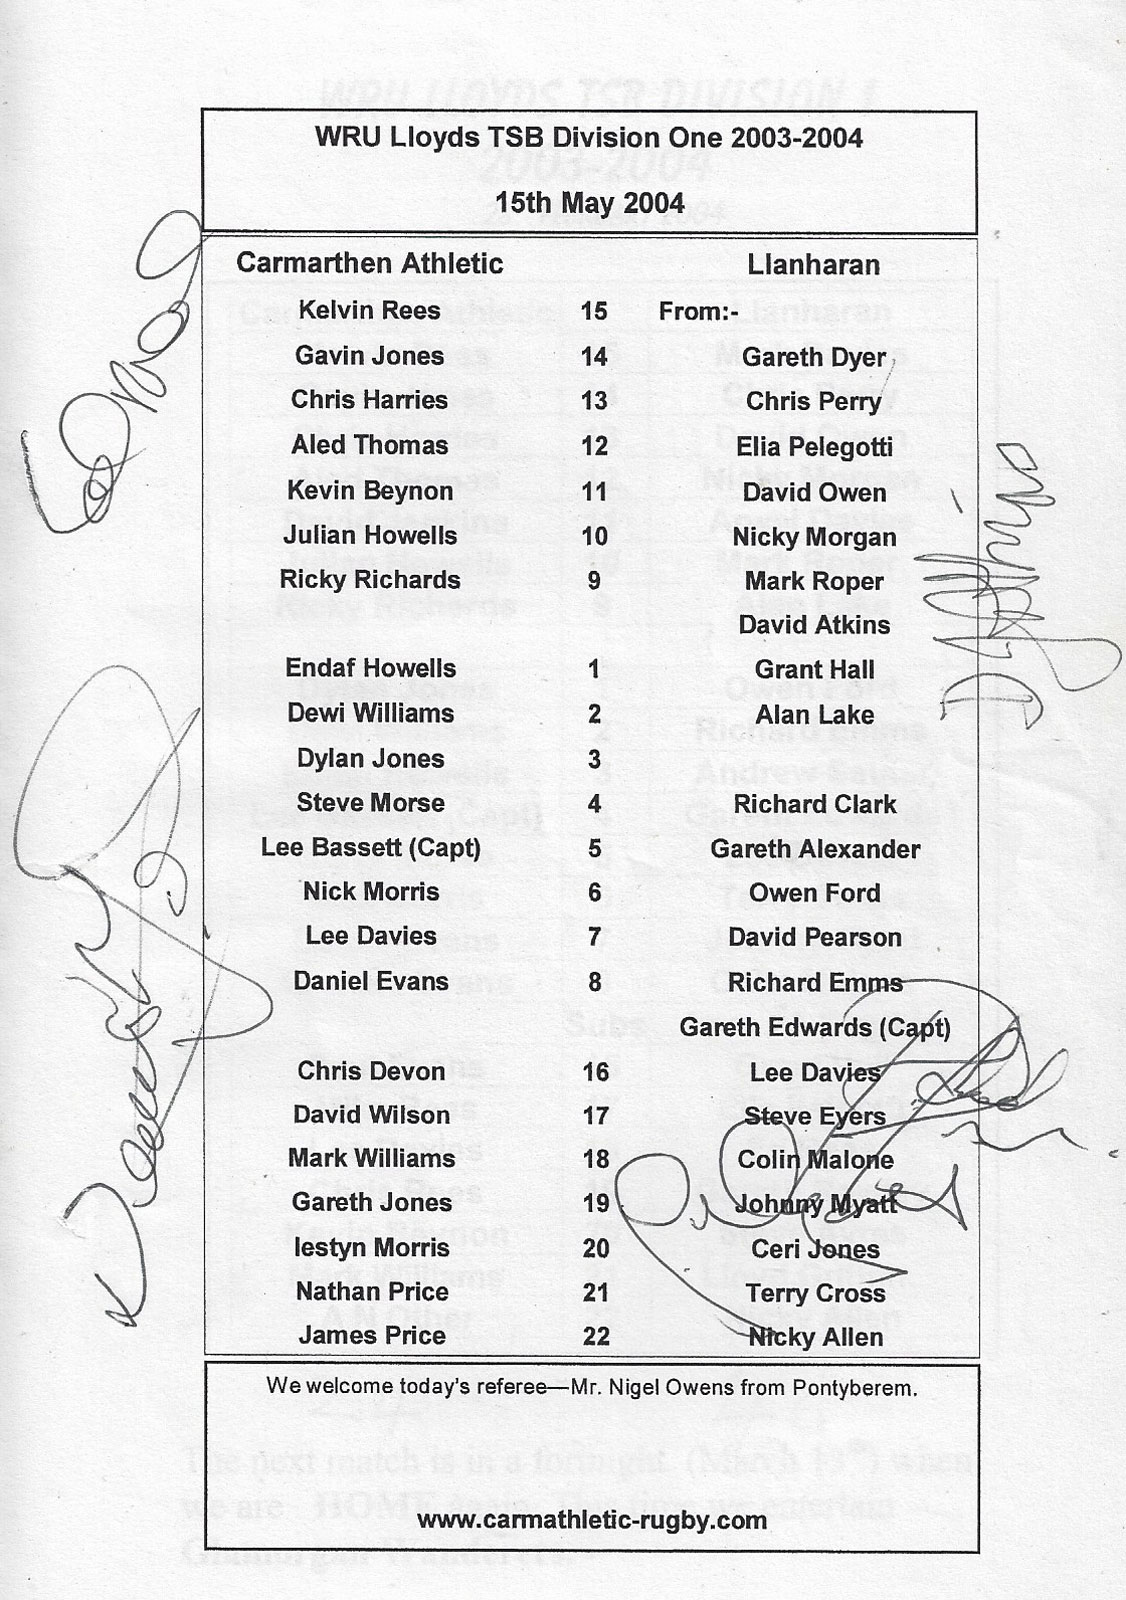 WRU Lloyds TSB Division One 2003-2004
15th May 2004
Carmarthen Athletic Llanharan
Kelvin Rees 15 From:-
Gavin Jones 14 Gareth Dyer
Chris Harries 13 Chris Perry
Aled Thomas 12 Elia Pelegotti
Kevin Beynon 11 David Owen
Julian Howells 10 Nicky Morgan
Ricky Richards 9 Mark Roper
David Atkins
Endaf Howells 1 Grant Hall
Dewi Williams 2 Alan Lake
Dylan Jones 3
Steve Morse 4 Richard Clark
Lee Bassett (Capt) 5 Gareth Alexander
Nick Morris 6 Owen Ford
Lee Davies 7 David Pearson
Daniel Evans 8 Richard Emms
Gareth Edwards (Capt)
Chris Devon 16 Lee Davies
David Wilson 17 Steve Eyers
Mark Williams 18 Colin Malone
Gareth Jones 19 Johnny Myatt
Iestyn Morris 20 Ceri Jones
Nathan Price 21 Terry Cross
James Price 22 Nicky Allen
We welcome today's referee—Mr. Nigel Owens from Pontyberem.
www.carmathletic-rugby.com